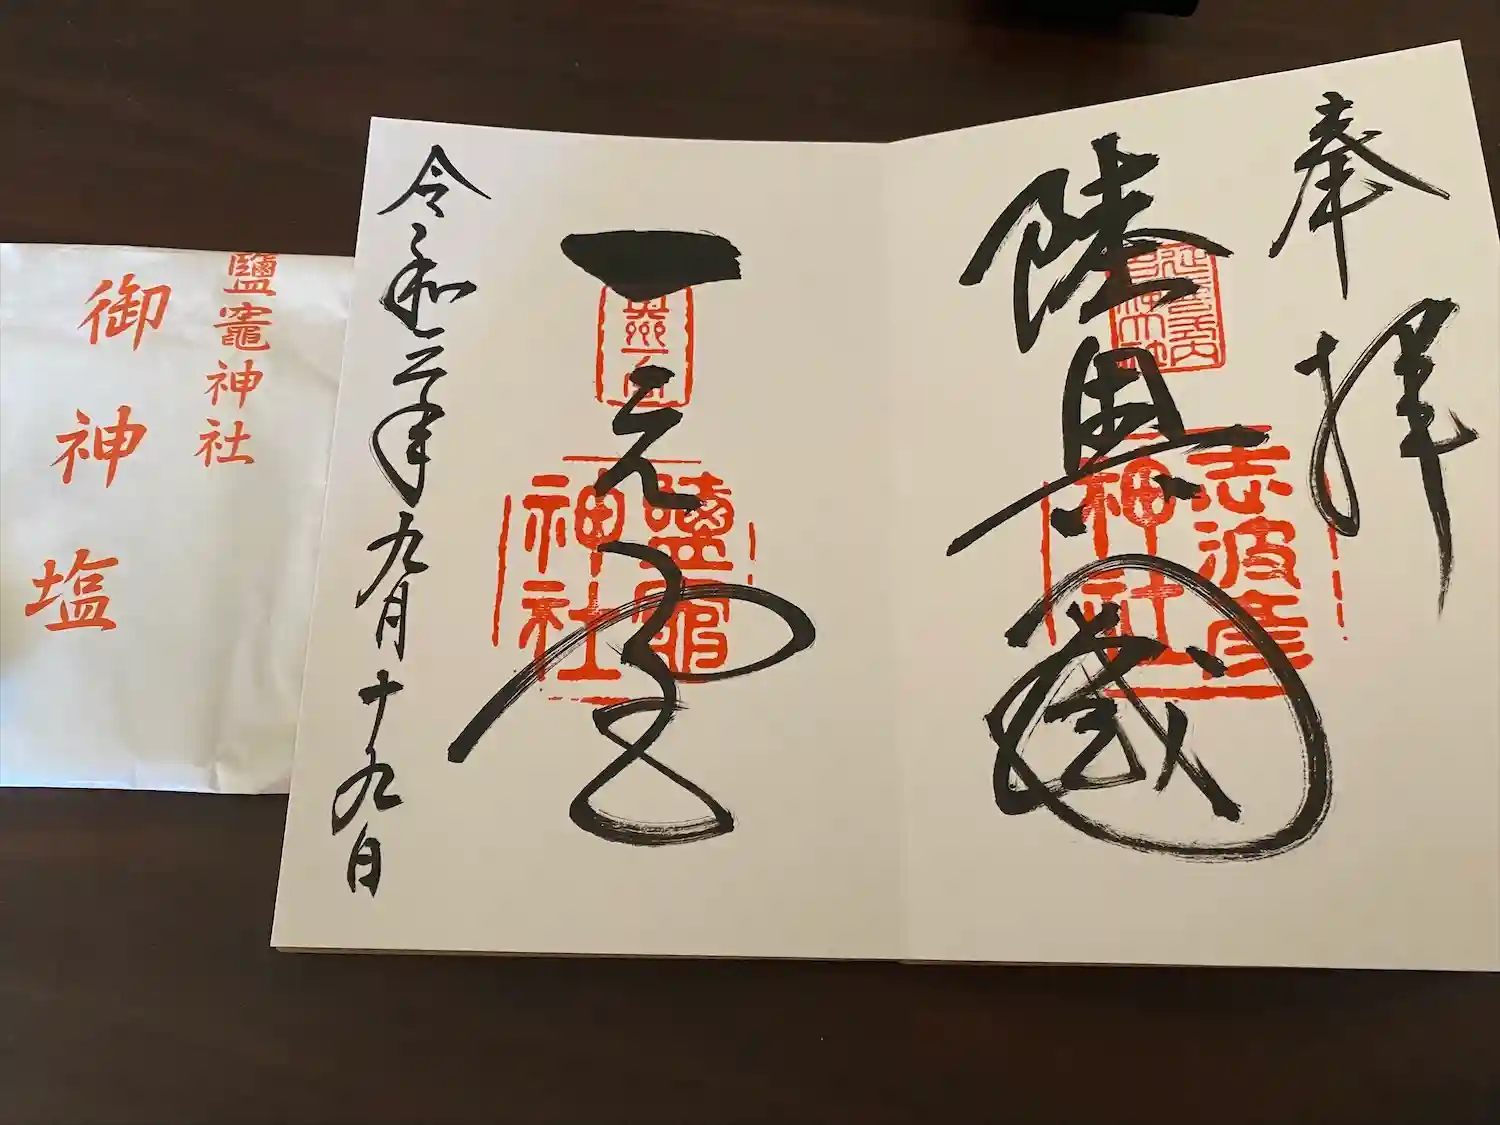 奉拝
陸奥國
志波彦
神社
一之宮
鹽竈
神社
令和二年九月十九日
鹽竈神社
御神塩